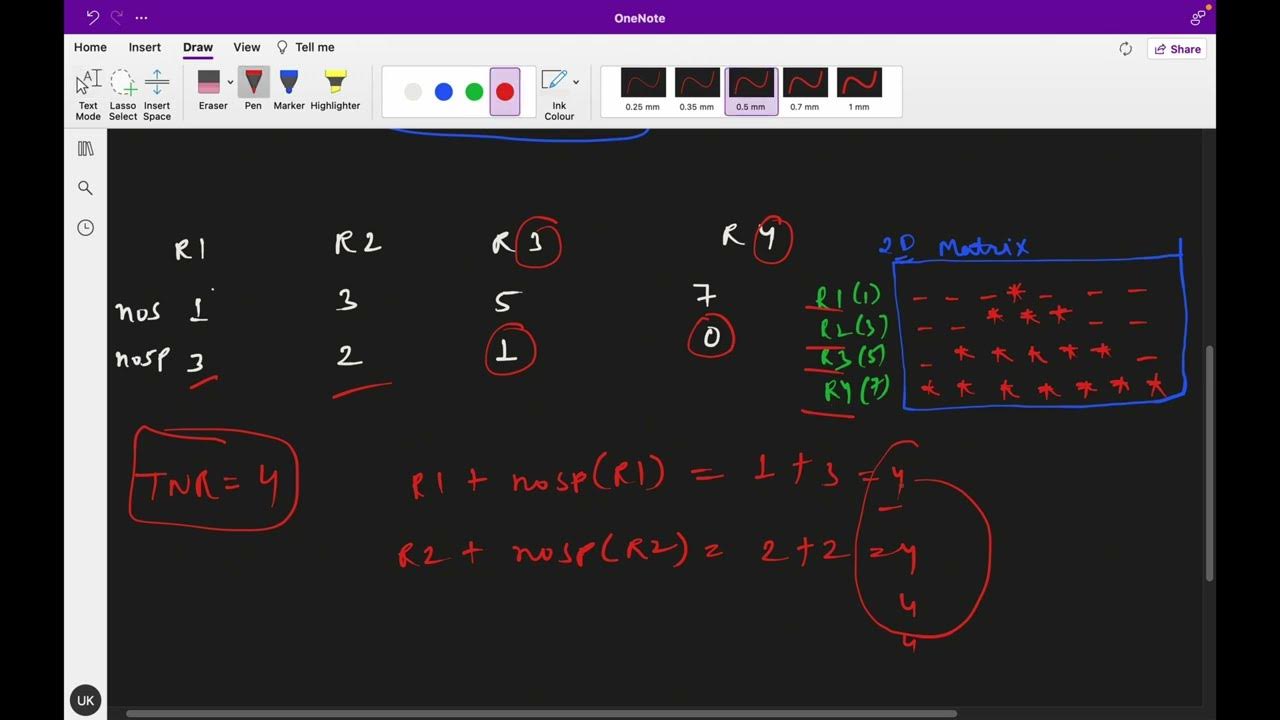 OneNote
Home Insert Draw View Tell me Share
Text Mode Lasso Select Insert Space Eraser Pen Marker Highlighter Ink Colour 0.25 mm 0.35 mm 0.5 mm 0.7 mm 1 mm
R1 R2 R3 R4
nos 1 3 5 7
nosp 3 2 1 0
2D Matrix
R1(1) - - - * - - -
R2(3) - - * * * - -
R3(5) - * * * * * -
R4(7) * * * * * * *
TNR = 4
R1 + nosp(R1) = 1 + 3 = 4
R2 + nosp(R2) = 2 + 2 = 4
4
4
UK